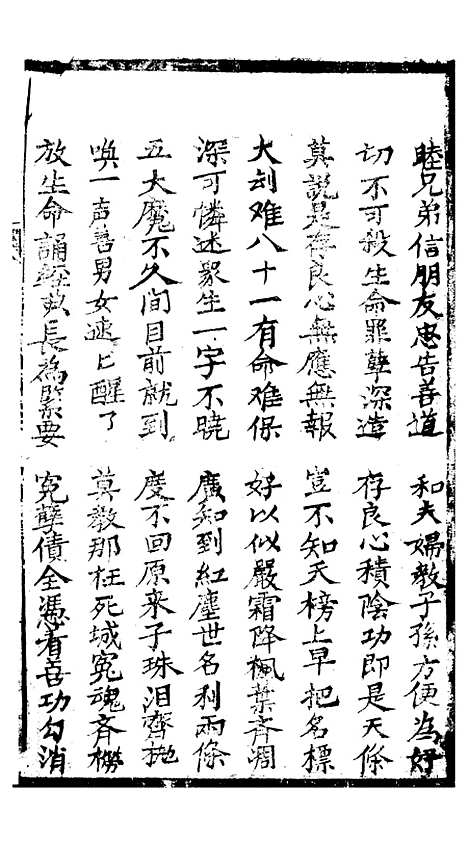 睦兄弟信朋友忠告善道 和夫婦教子孫方便為好
切不可殺生命罪孽深造 存良心積陰功即是天條
莫說是存良心無應無報 豈不知天榜上早把名標
大刦难八十一有命难保 好以似嚴霜降楓葉齊凋
深可憐迷眾生一字不曉 廣知到紅塵世名利两條
五大魔不久间目前就到 度不回原来子珠泪齊拋
唤一声善男女速已醒了 莫教那枉死城冤魂齊
放生命誦經 長為緊要 冤孽債全憑着善功勾消